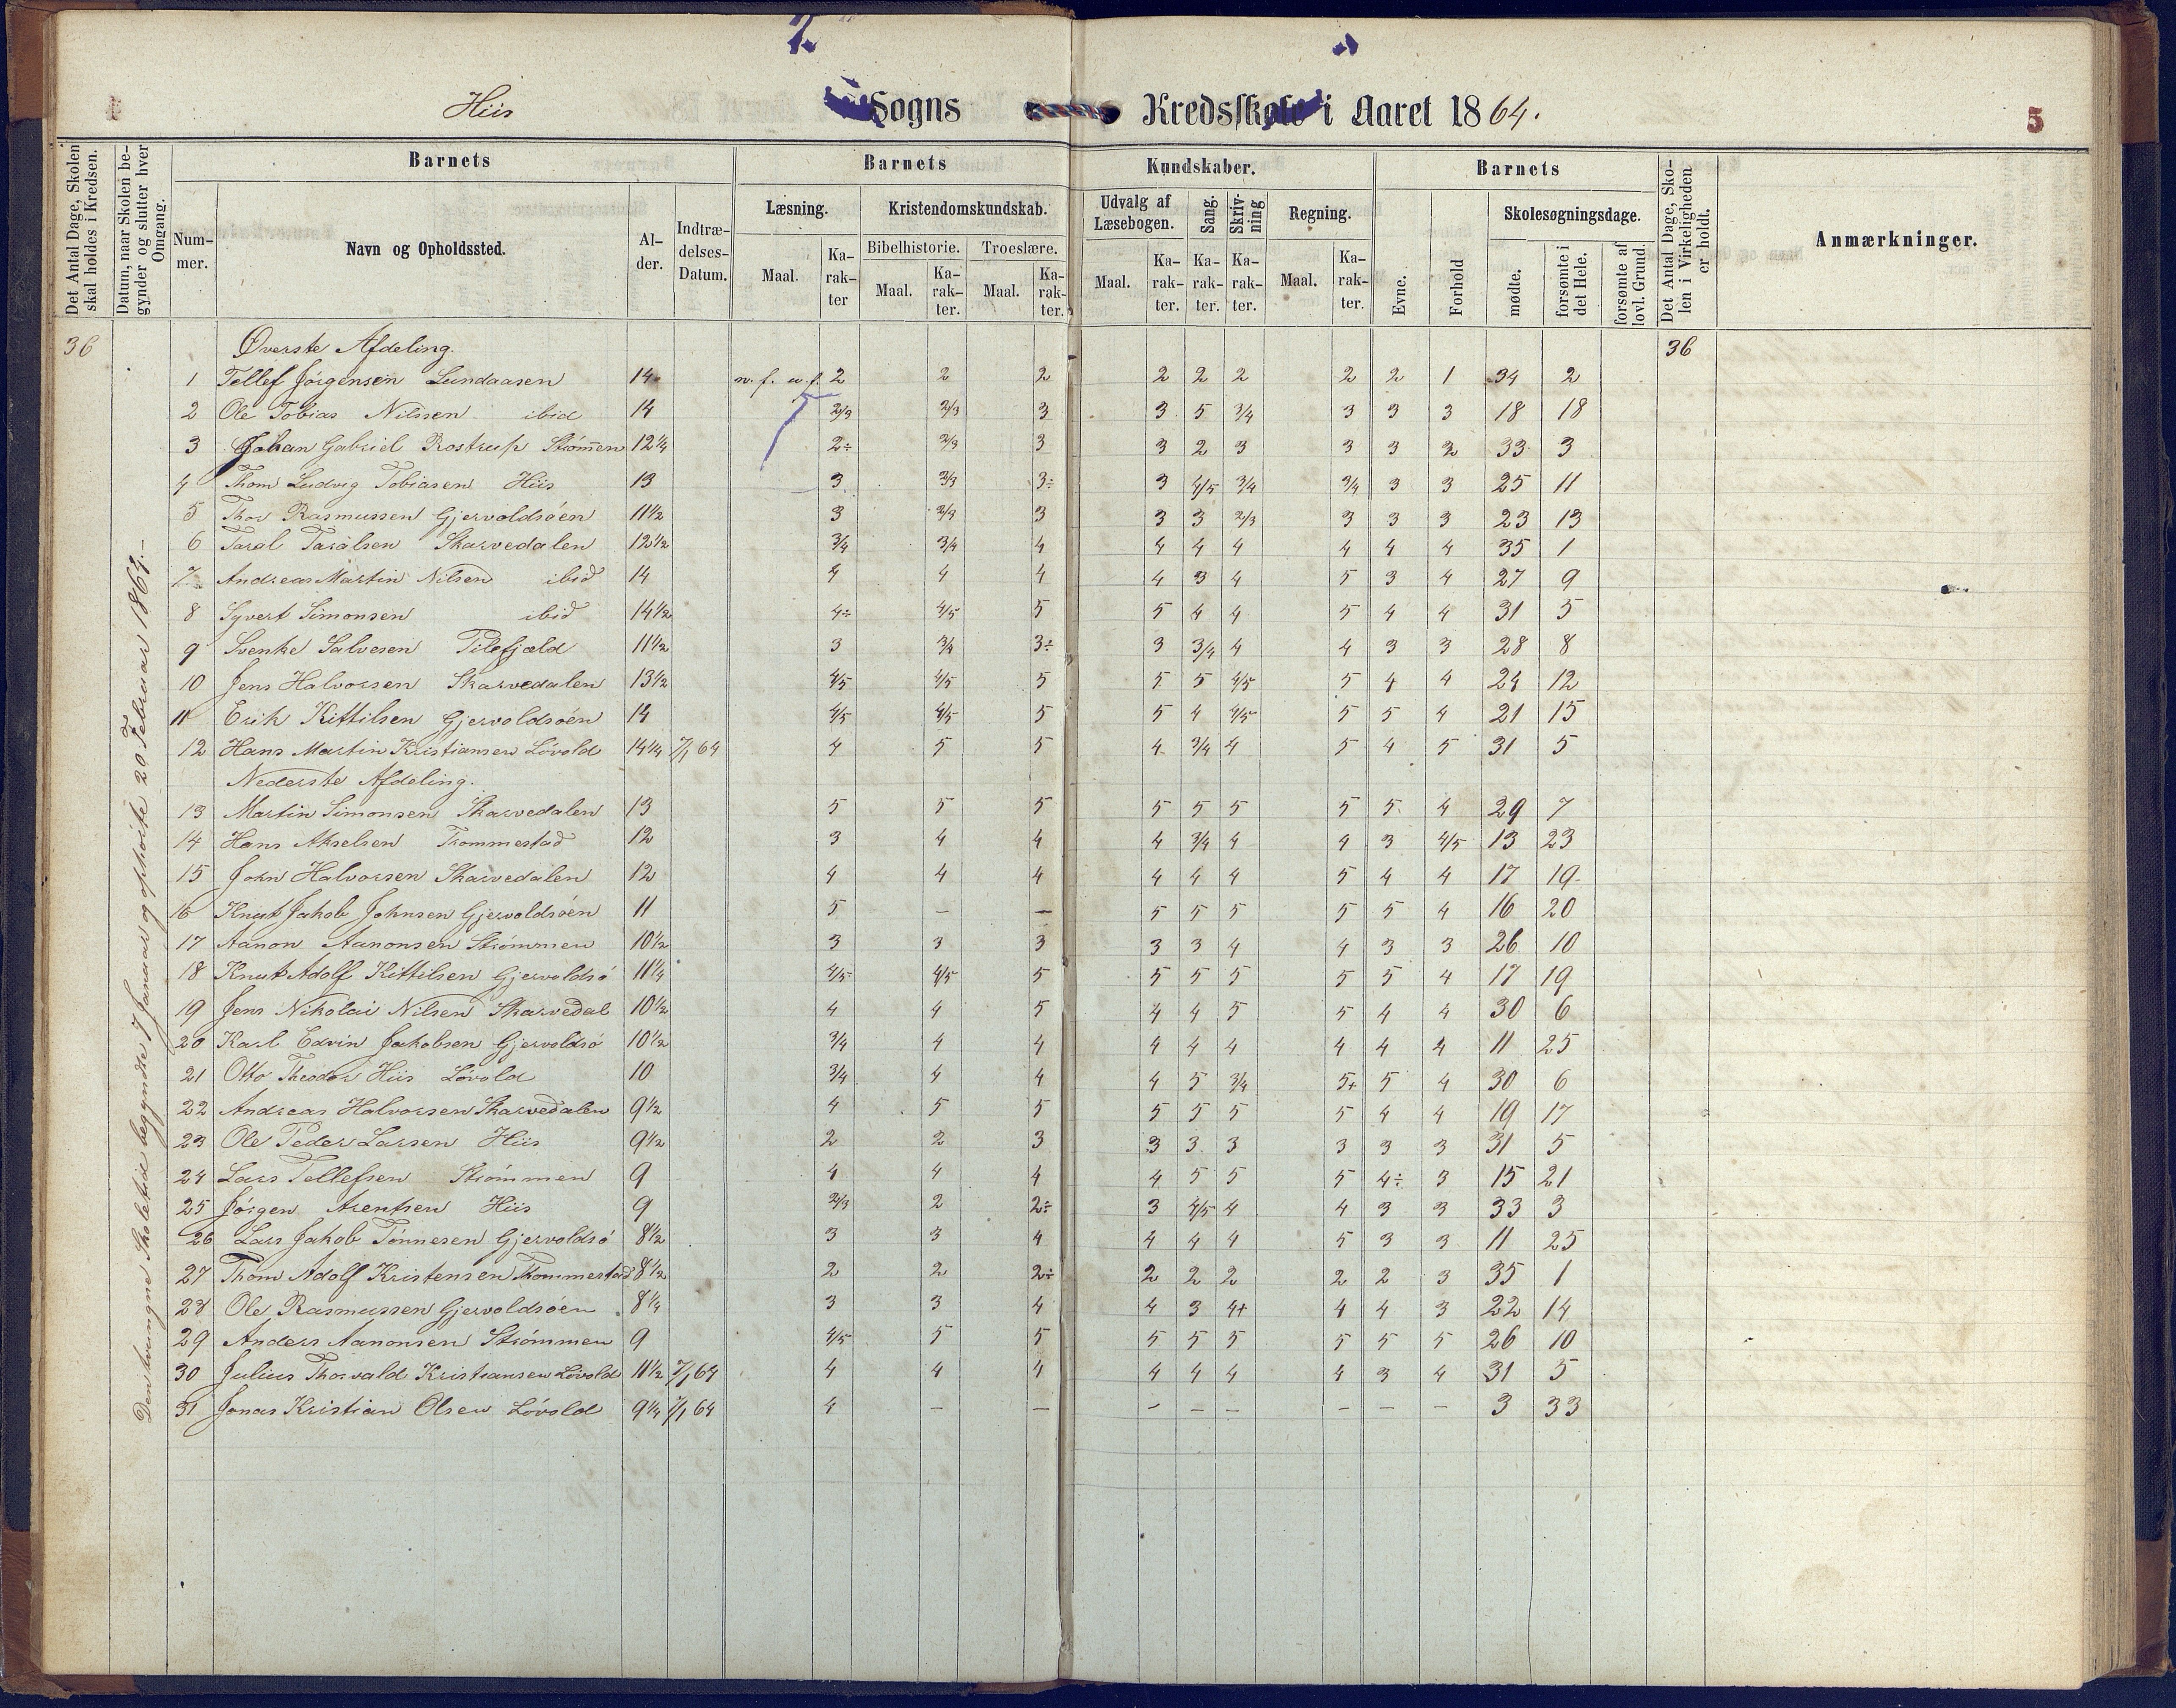 7.
Hiis Sogns Kredsskole i Aaret 1864. 5
Det Antal Dage, Skolen skal holdes i Kredsen.
Datum, naar Skolen begynder og slutter hver Omgang.
Barnets Barnets Kundskaber. Barnets
Nummer. Navn og Opholdssted. Alder. Indtrædelses-Datum.
Læsning. Kristendomskundskab. Udvalg af Læsebogen. Sang. Skrivning Regning. Evne. Forhold Skolesøgningsdage.
Bibelhistorie. Troeslære.
Maal. Karakter Maal. Karakter. Maal. Karakter. Maal. Karakter. Karakter. Karakter. Maal. Karakter. mødte. forsømte i det Hele. forsømte af lovl. Grund.
Det Antal Dage, Skolen i Virkeligheden er holdt.
Anmærkninger.
Den tvungne Skoletid begyndte 7 Januar og ophörte 20 Februar 1864.
36 Øverste Afdeling. 36
1 Tellef Jörgensen Lundaasen 14 2 2 2 2 2 2 2 2 1 34 2
2 Ole Tobias Nilssen ibid 14 2/3 2/3 3 3 5 3/4 3 3 3 18 18
3 Johan Gabriel Rostrup Strömmen 12 1/4 2÷ 2/3 3 3 2 3 3 3 2 33 3
4 Thom Ludvig Tobiasen Hiis 13 3 2/3 3÷ 3 4/5 3/4 3/4 3 3 25 11
5 Thor Rasmussen Gjervoldsöen 11 1/2 3 2/3 3 3 3 2/3 3 3 3 23 13
6 Taral Taralsen Skarvedalen 12 1/2 3/4 3/4 4 4 4 4 4 4 4 35 1
7 Andreas Martin Nilsen ibid 14 4 4 4 4 3 4 5 3 4 27 9
8 Syvert Simonsen ibid 14 1/2 4÷ 4/5 5 5 4 4 5 4 4 31 5
9 Svenke Salvesen Pilefjeld 11 1/2 3 3/4 3÷ 3 3/4 4 4 3 3 28 8
10 Jens Halvorsen Skarvedalen 13 1/2 4/5 4/5 5 5 5 4/5 5 4 4 24 12
11 Erik Kittilsen Gjervoldsöen 14 4/5 4/5 5 5 4 4/5 5 5 4 21 15
12 Hans Martin Kristiansen Lövold 14 1/4 7/1 64 4 5 5 4 3/4 4 5 4 5 31 5
Nederste Afdeling.
13 Martin Simonsen Skarvedalen 13 5 5 5 5 5 5 5 5 4 29 7
14 Hans Akselsen Trommestad 12 3 4 4 4 3/4 4 4 3 4/5 13 23
15 John Halvorsen Skarvedalen 12 4 4 4 4 4 4 5 4 4 17 19
16 Knut Jakob Johnsen Gjervoldsöen 11 5 — — 5 5 5 5 5 4 16 20
17 Aanon Aanonsen Strömmen 10 1/2 3 3 3 3 3 4 4 3 3 26 10
18 Knut Adolf Kittilsen Gjervoldsö 11 1/4 4/5 4/5 5 5 5 5 5 5 4 17 19
19 Jens Nikolai Nilsen Skarvedal 10 1/2 4 4 5 4 4 5 5 4 4 30 6
20 Karl Edvin Jakobsen Gjervoldsö 10 1/2 3/4 4 4 4 4 4 4 4 4 11 25
21 Otto Theodor Hiis Lövold 10 3/4 4 4 4 5 3/4 5+ 5 4 30 6
22 Andreas Halvorsen Skarvedalen 9 1/2 4 5 5 5 5 5 5 4 4 19 17
23 Ole Peder Larsen Hiis 9 1/2 2 2 3 3 3 3 3 3 3 31 5
24 Lars Tellefsen Strömmen 9 4 4 4 4 5 5 5 4÷ 3 15 21
25 Jörgen Arentsen Hiis 9 2/3 2 2÷ 3 4/5 4 4 3 3 33 3
26 Lars Jakob Tönnesen Gjervoldsö 8 1/2 3 3 4 4 4 4 5 3 3 11 25
27 Thom Adolf Kristensen Trommestad 8 1/2 2 2 2÷ 2 2 2 2 2 3 35 1
28 Ole Rasmussen Gjervoldsöen 8 1/4 3 3 4 4 3 4+ 4 4 3 22 14
29 Anders Aanonsen Strömmen 9 4/5 5 5 5 5 5 5 5 5 26 10
30 Julius Thorvald Kristiansen Lövold 11 1/2 7/1 64 4 4 4 4 4 4 4 3 4 31 5
31 Jonas Kristian Olsen Lövold 9 1/4 7/1 64 4 — — — — — — — — 3 33